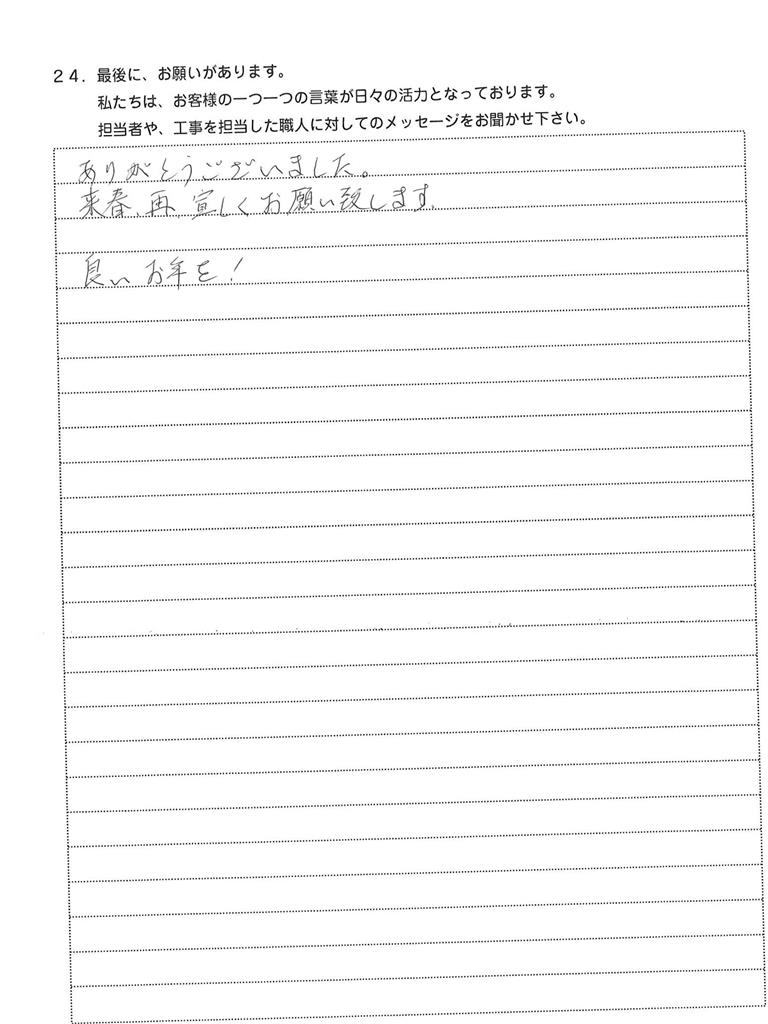 ２４．最後に、お願いがあります。
私たちは、お客様の一つ一つの言葉が日々の活力となっております。
担当者や、工事を担当した職人に対してのメッセージをお聞かせ下さい。
ありがとうございました。
来春、再、宜しくお願い致します。
良いお年を！